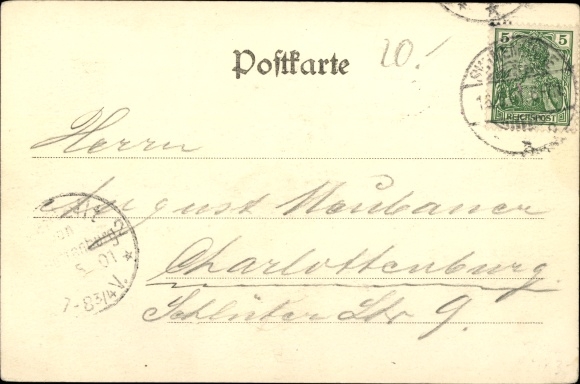 Postkarte
20!
5 5
REICHSPOST
Herrn
August Neubauer
Charlottenburg
Schlüter Str 9.
7-8